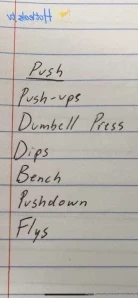 Push
Push-ups
Dumbell Press
Dips
Bench
Pushdown
Flys